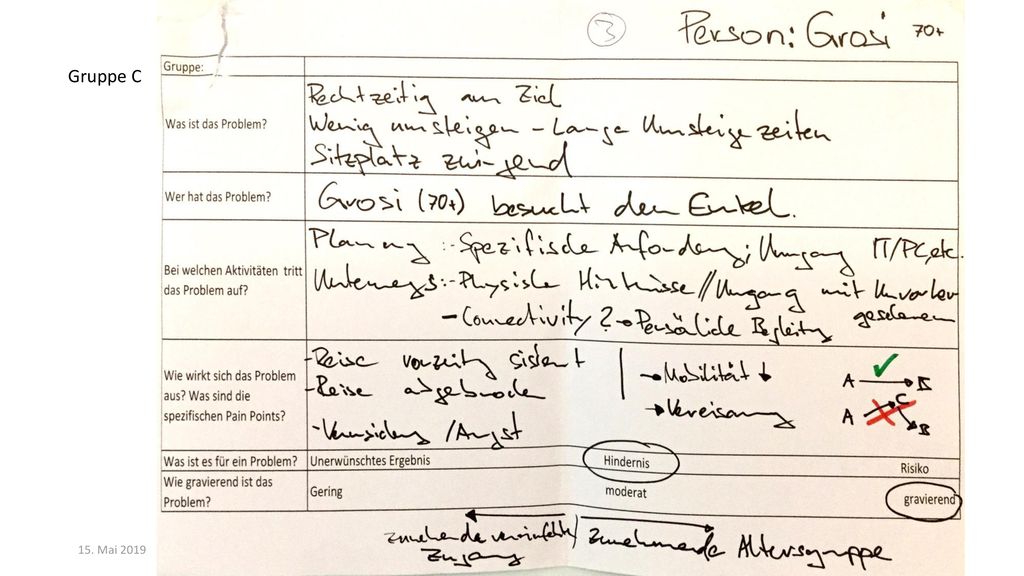 3
Person: Grosi 70+
Gruppe C
Gruppe:
Was ist das Problem?
Rechtzeitig am Ziel
Wenig umsteigen - Lange Umsteigezeiten
Sitzplatz zwingend
Wer hat das Problem?
Grosi (70+) besucht den Enkel.
Bei welchen Aktivitäten tritt
das Problem auf?
Planung :- Spezifische Anforderung; Umgang IT/PC, etc.
Unterwegs:- Physische Hindernisse // Umgang mit Unvorher
gesehenem
- Connectivity ? → Persönliche Begleitung
Wie wirkt sich das Problem
aus? Was sind die
spezifischen Pain Points?
- Reise vorzeitig sistiert
- Reise abgebrochen
- /Angst
→ Mobilität ↓
→ Vereisamung
A → B
A → C → B
Was ist es für ein Problem?
Unerwünschtes Ergebnis
Hindernis
Risiko
Wie gravierend ist das
Problem?
Gering
moderat
gravierend
Zugang
zunehmende Altersgruppe
15. Mai 2019